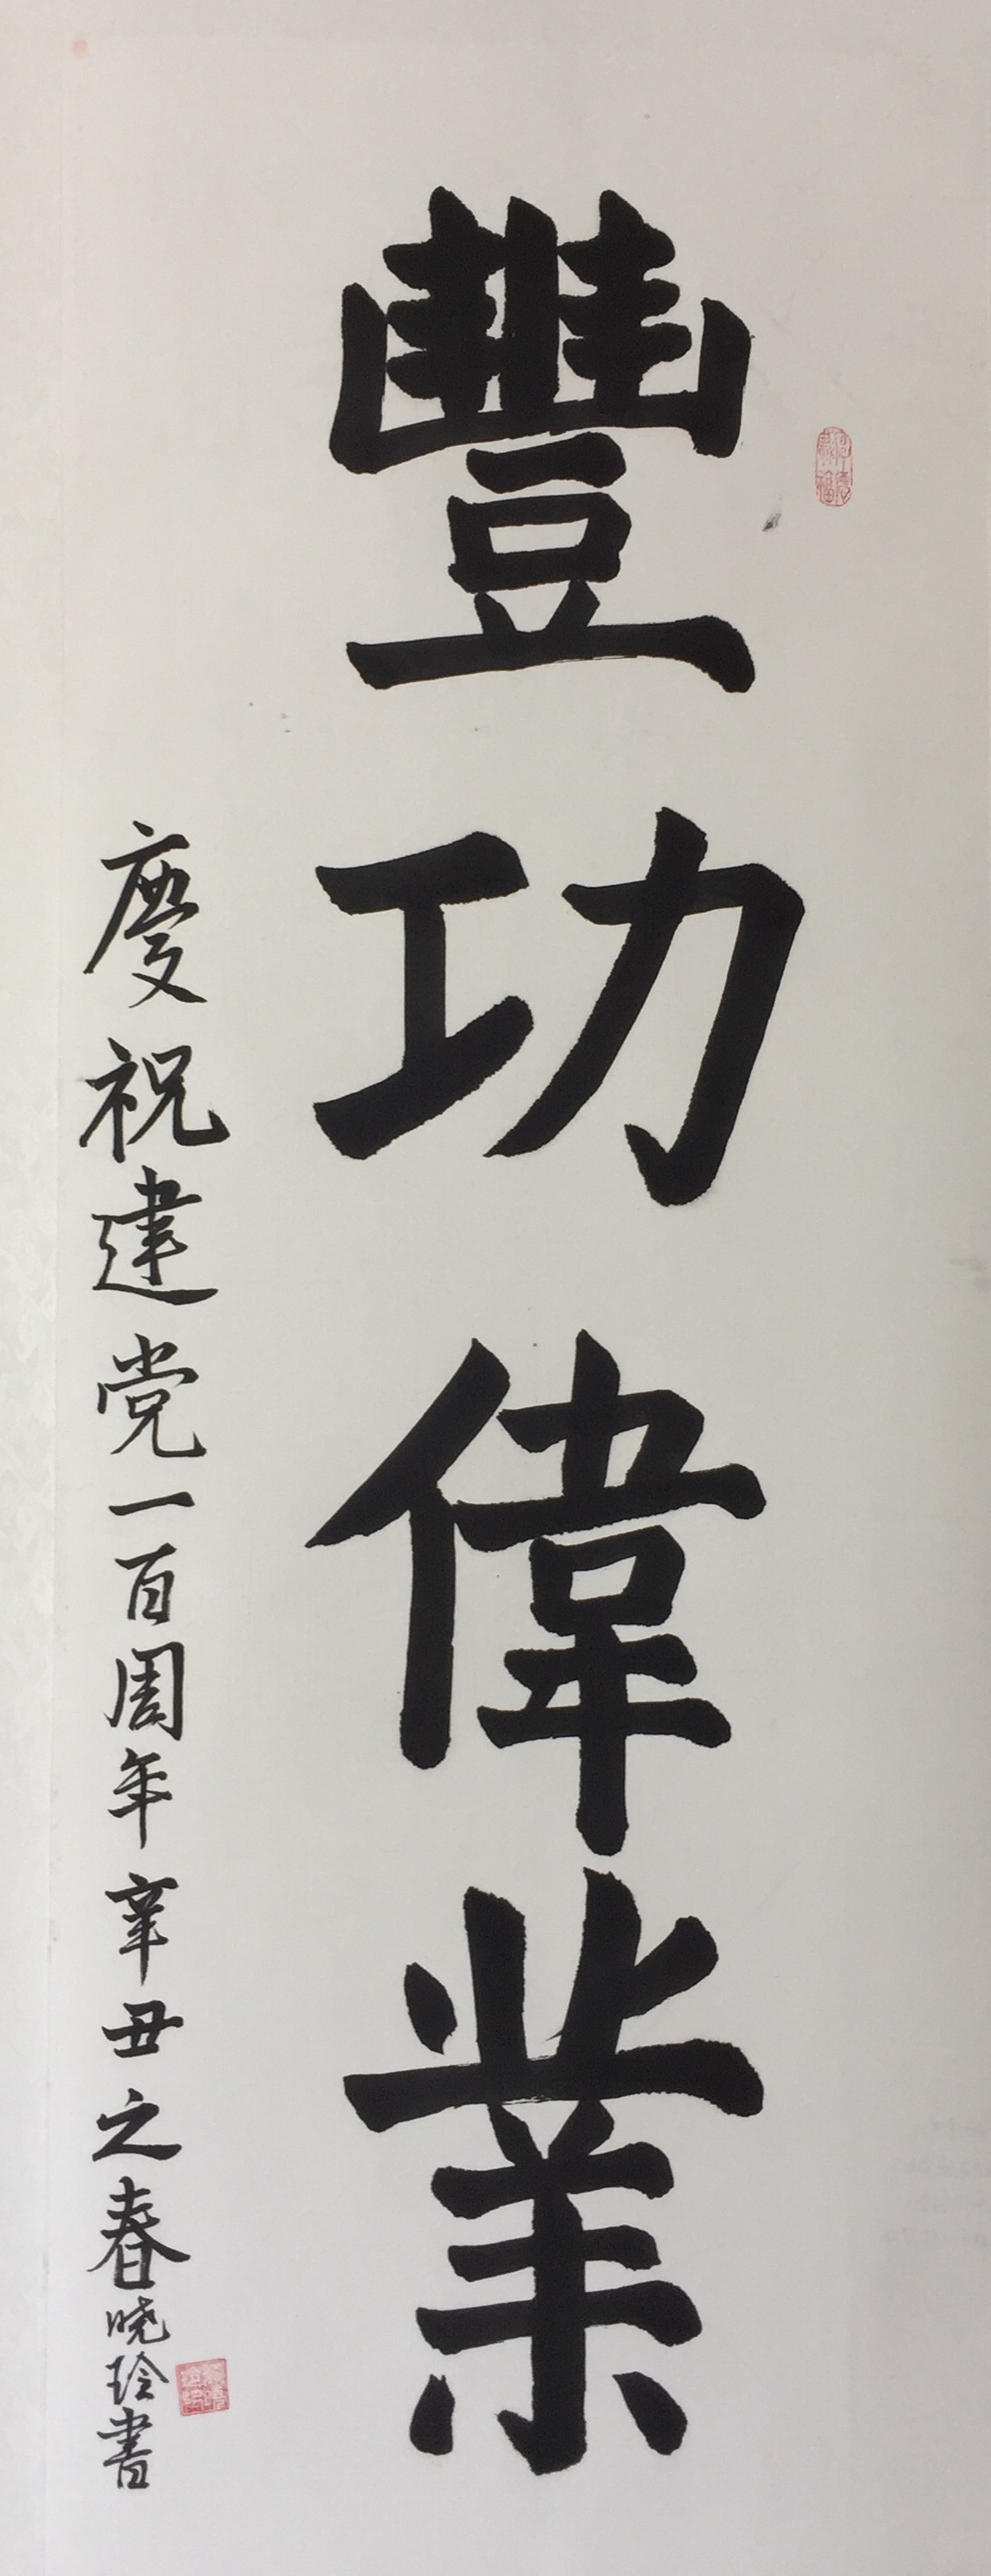 豐功偉業
慶祝建党一百周年辛丑之春晓玲書